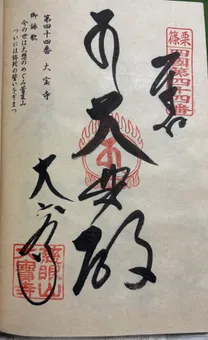 奉納
四國第四十四番
大悲殿
大宝寺
菅生山
大寶寺
第四十四番 大宝寺
御詠歌
今の世は大悲のめぐみ菅生山
ついには弥陀の誓いをぞまつ